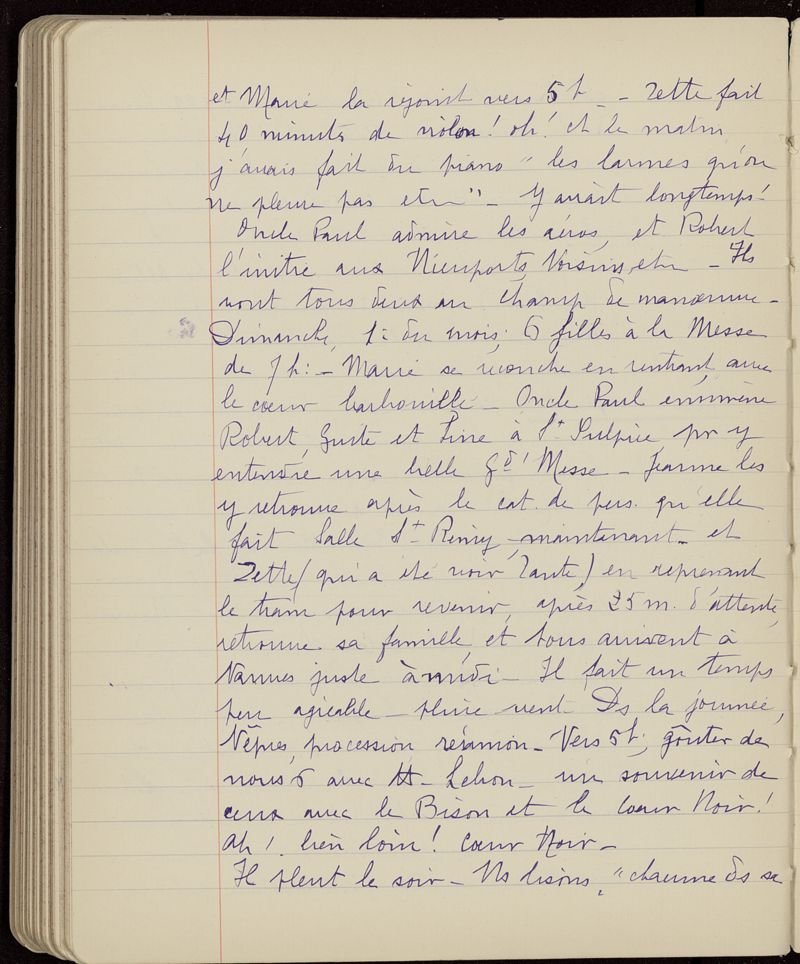 et Marie la rejoint vers 5 h – Zette fait
40 minutes de violon ! oh ! et le matin
j'avais fait du piano " les larmes qu'on
ne pleure pas etc " – Y avait longtemps !
Oncle Paul admire les aéros, et Robert
l'initie aux Nieuports, Voisins, etc – Ils
vont tous deux au Champ de manœuvre –
Dimanche, 1er du mois. 6 filles à la Messe
de 7 h : – Marie se recouche en rentrant, avec
le cœur barbouillé – Oncle Paul emmène
Robert, Guste et Line à St Sulpice pr y
entendre une belle Gd' Messe – Jeanne les
y retrouve après le cat. de pers. qu'elle
fait Salle St Rémy – maintenant – et
Zette ( qui a été voir Tante ) en reprenant
le train pour revenir, après 25 m. d'attente,
retrouve sa famille, et tous arrivent à
Vanves juste à midi – Il fait un temps
peu agréable – pluie vent – Ds la journée,
Vêpres, procession réunion – Vers 5 h, goûter de
nous 6 avec M – Lebon – un souvenir de
ceux avec le Bison et le Cœur Noir !
Ah ! bien loin ! Cœur Noir –
Il pleut le soir – Ns lisons, " chacune ds sa